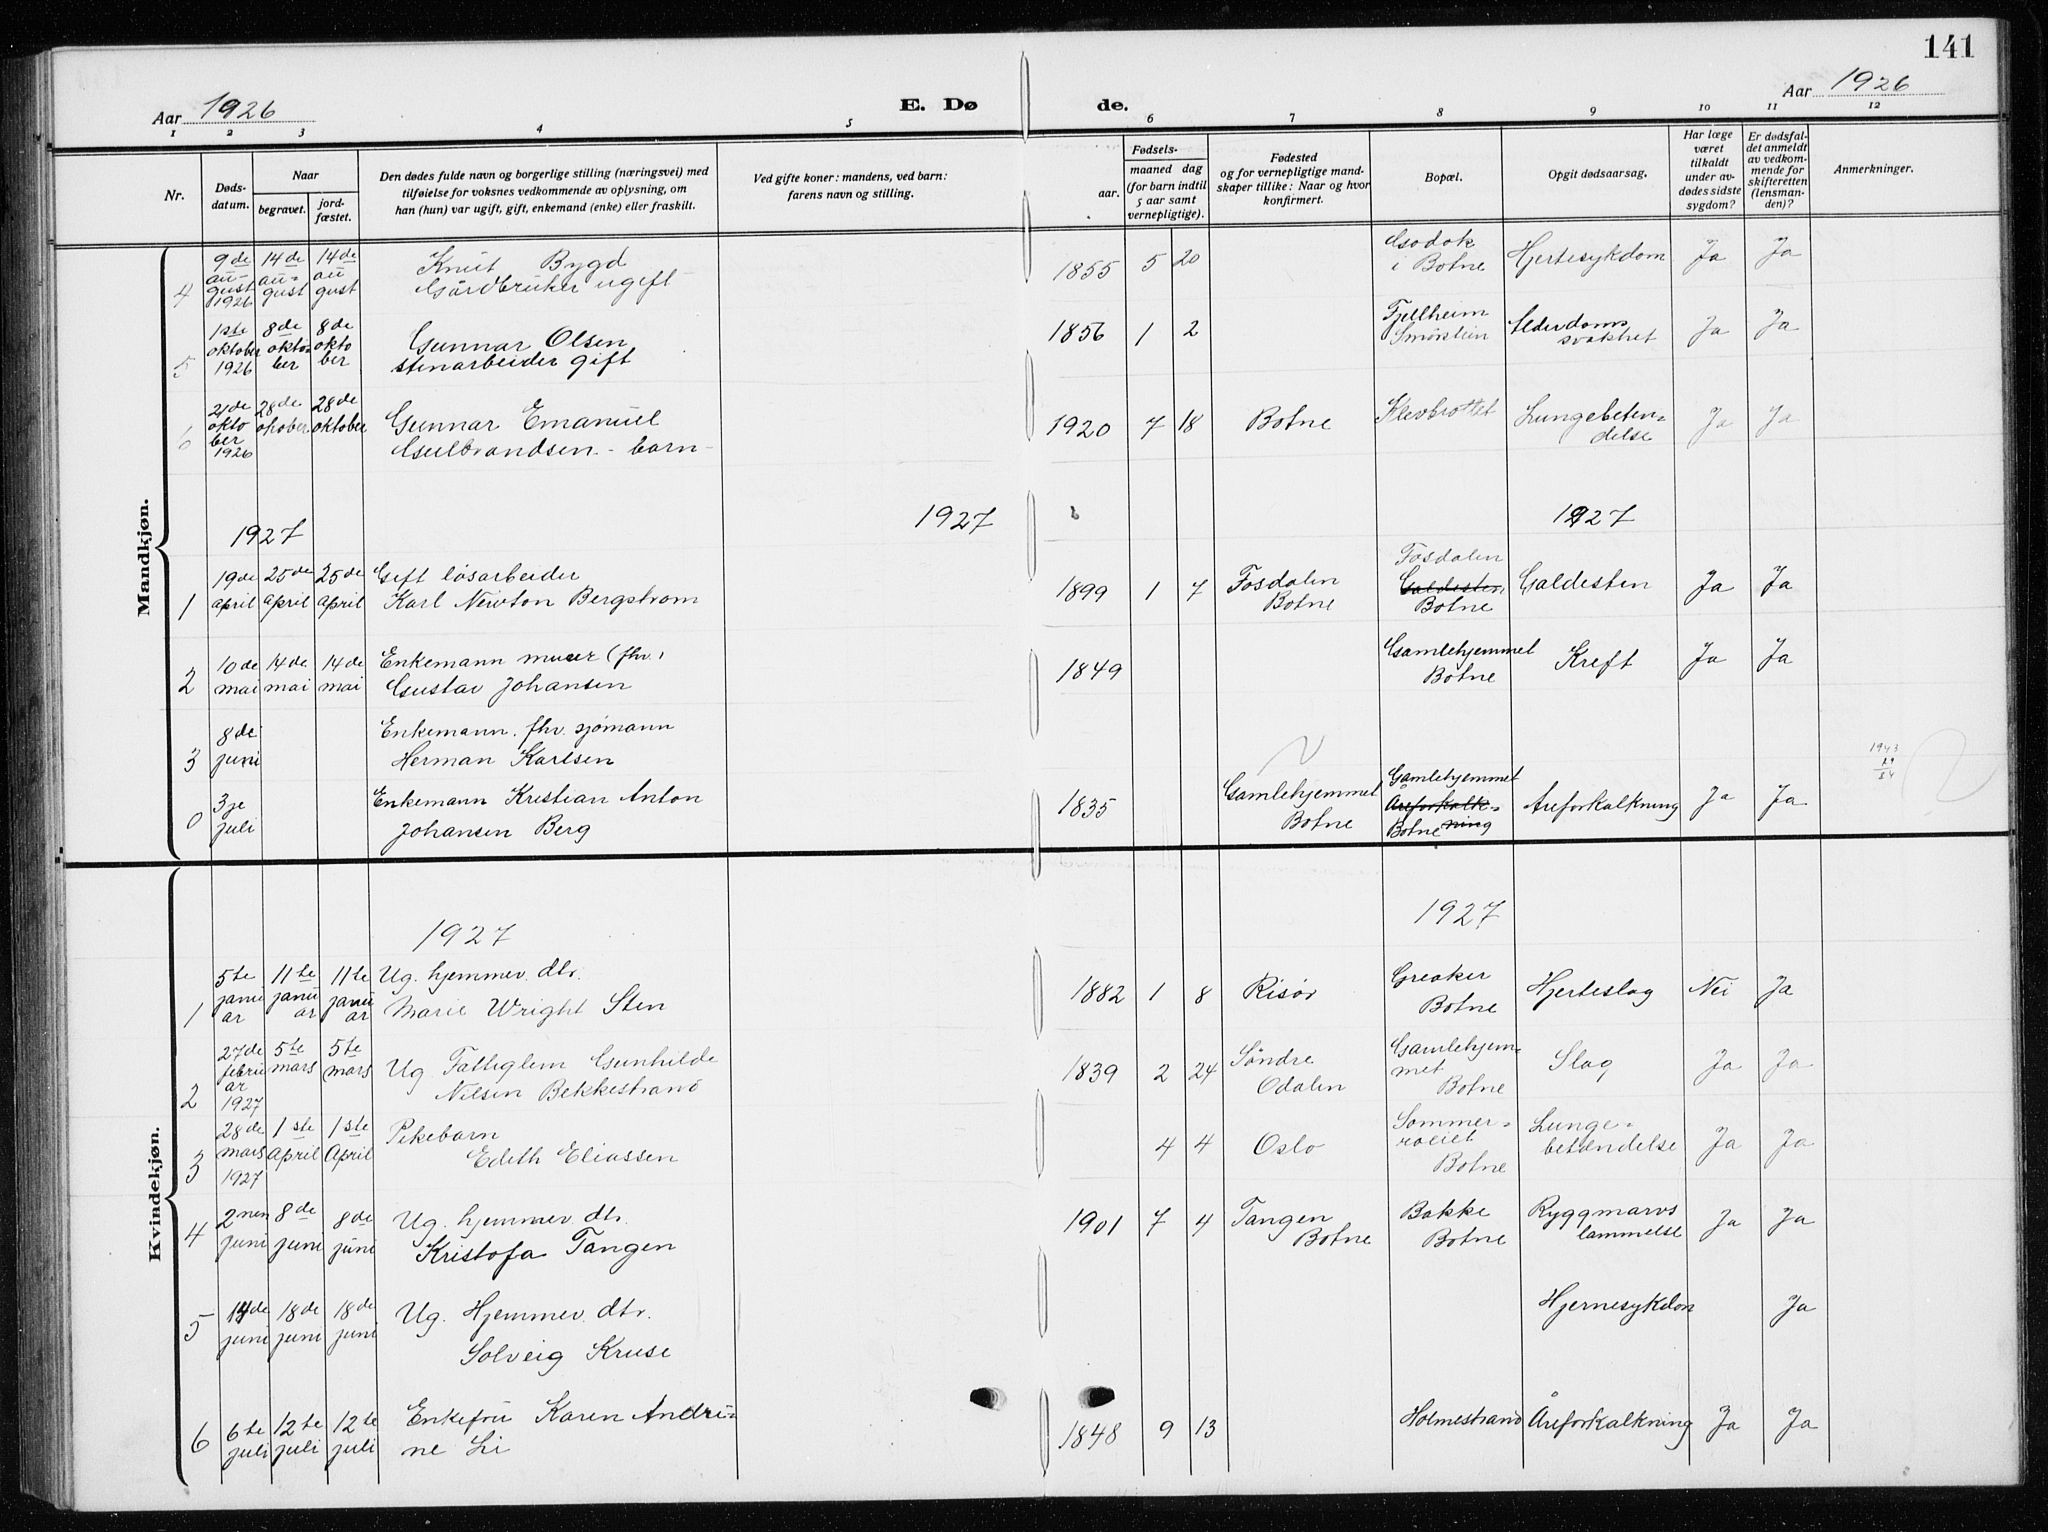 141
Aar 1926
E. Dø
de.
Aar 1926
1 2 3 4 5 6 7 8 9 10 11 12
Nr.
Døds-
datum.
Naar
begravet.
jord-
fæstet.
Den dødes fulde navn og borgerlige stilling (næringsvei) med
tilføielse for voksnes vedkommende av oplysning, om
han (hun) var ugift, gift, enkemand (enke) eller fraskilt.
Ved gifte koner: mandens, ved barn:
farens navn og stilling.
Fødsels-
aar.
maaned dag
(for barn indtil
5 aar samt
vernepligtige).
Fødested
og for vernepligtige mand-
skaper tillike: Naar og hvor
konfirmert.
Bopæl.
Opgit dødsaarsag.
Har læge
været
tilkaldt
under av-
dødes sidste
sygdom?
Er dødsfal-
det anmeldt
av vedkom-
mende for
skifteretten
(lensman-
den)?
Anmerkninger.
Mandkjøn.
4
9de
au-
gust
1926
14de
au-
gust
14de
au
gust
Knut Bygd
Gårdbruker ugift
1855 5 20
i Botne
Hjertesykdom
Ja
Ja
5
1ste
oktober
1926
8de
okto
ber
8de
okto
ber
Gunnar Olsen
stenarbeider gift
1856 1 2
Fjellheim
Smørstein
Alderdoms
svakhet
Ja
Ja
6
21de
okto
ber
1926
28de
28de
oktober
Gunnar Emanuel
Gulbrandsen - barn -
1920 7 18
Botne
Klevbrottet
Lungebeten-
delse
Ja
Ja
1927
1927
1927
1
19de
april
25de
april
25de
april
Gift løsarbeider
Karl Newton Bergstrøm
1899 1 7
Fosdalen
Botne
Fosdalen
Galdesten
Botne
Galdesten
Ja
Ja
2
10de
mai
14de
mai
14de
mai
Enkemann murer (fhv.)
Gustav Johansen
1849
Gamlehjemmet
Botne
Kreft
Ja
Ja
3
8de
juni
Enkemann. fhv. sjømann
Herman Karlsen
1943
29
0
3je
juli
Enkemann Kristian Anton
Johansen Berg
1835
Gamlehjemmet
Botne
Gamlehjemmet
Åreforkalk-
Botne ning
Areforkalkning
Ja
Ja
Kvindekjøn.
1927
1927
1
5te
janu
ar
11te
janu
ar
11te
janu
ar
Ug. hjemmev. dtr.
Marie Wright Sten
1882 1 8
Risør
Greaker
Botne
Hjerteslag
Nei
Ja
2
27de
febru
ar
1927
5te
mars
5te
mars
Ug Fattiglem Gunhilde
Nilsen Bekkestrand
1839 2 24
Søndre
Odalen
Gamlehjem-
met
Botne
Slag
Ja
Ja
3
28de
mars
1927
1ste
April
1ste
April
Pikebarn
Edith Eliassen
4 4
Oslo
Sommer-
roliet
Botne
Lunge-
betændelse
Ja
Ja
4
2nen
juni
8de
juni
8de
juni
Ug. hjemmev. dtr.
Kristofa Tangen
1901 7 4
Tangen
Botne
Bakke
Botne
Ryggmarvs
lammelse
Ja
Ja
5
14de
juni
18de
juni
18de
juni
Ug. Hjemmev. dtr.
Solveig Kruse
Hjernesykdom
Ja
6
6te
juli
12te
juli
12te
juli
Enkefru Karen Andri-
ne Li
1848 9 13
Holmestrand
Åreforkalkning
Ja
Ja